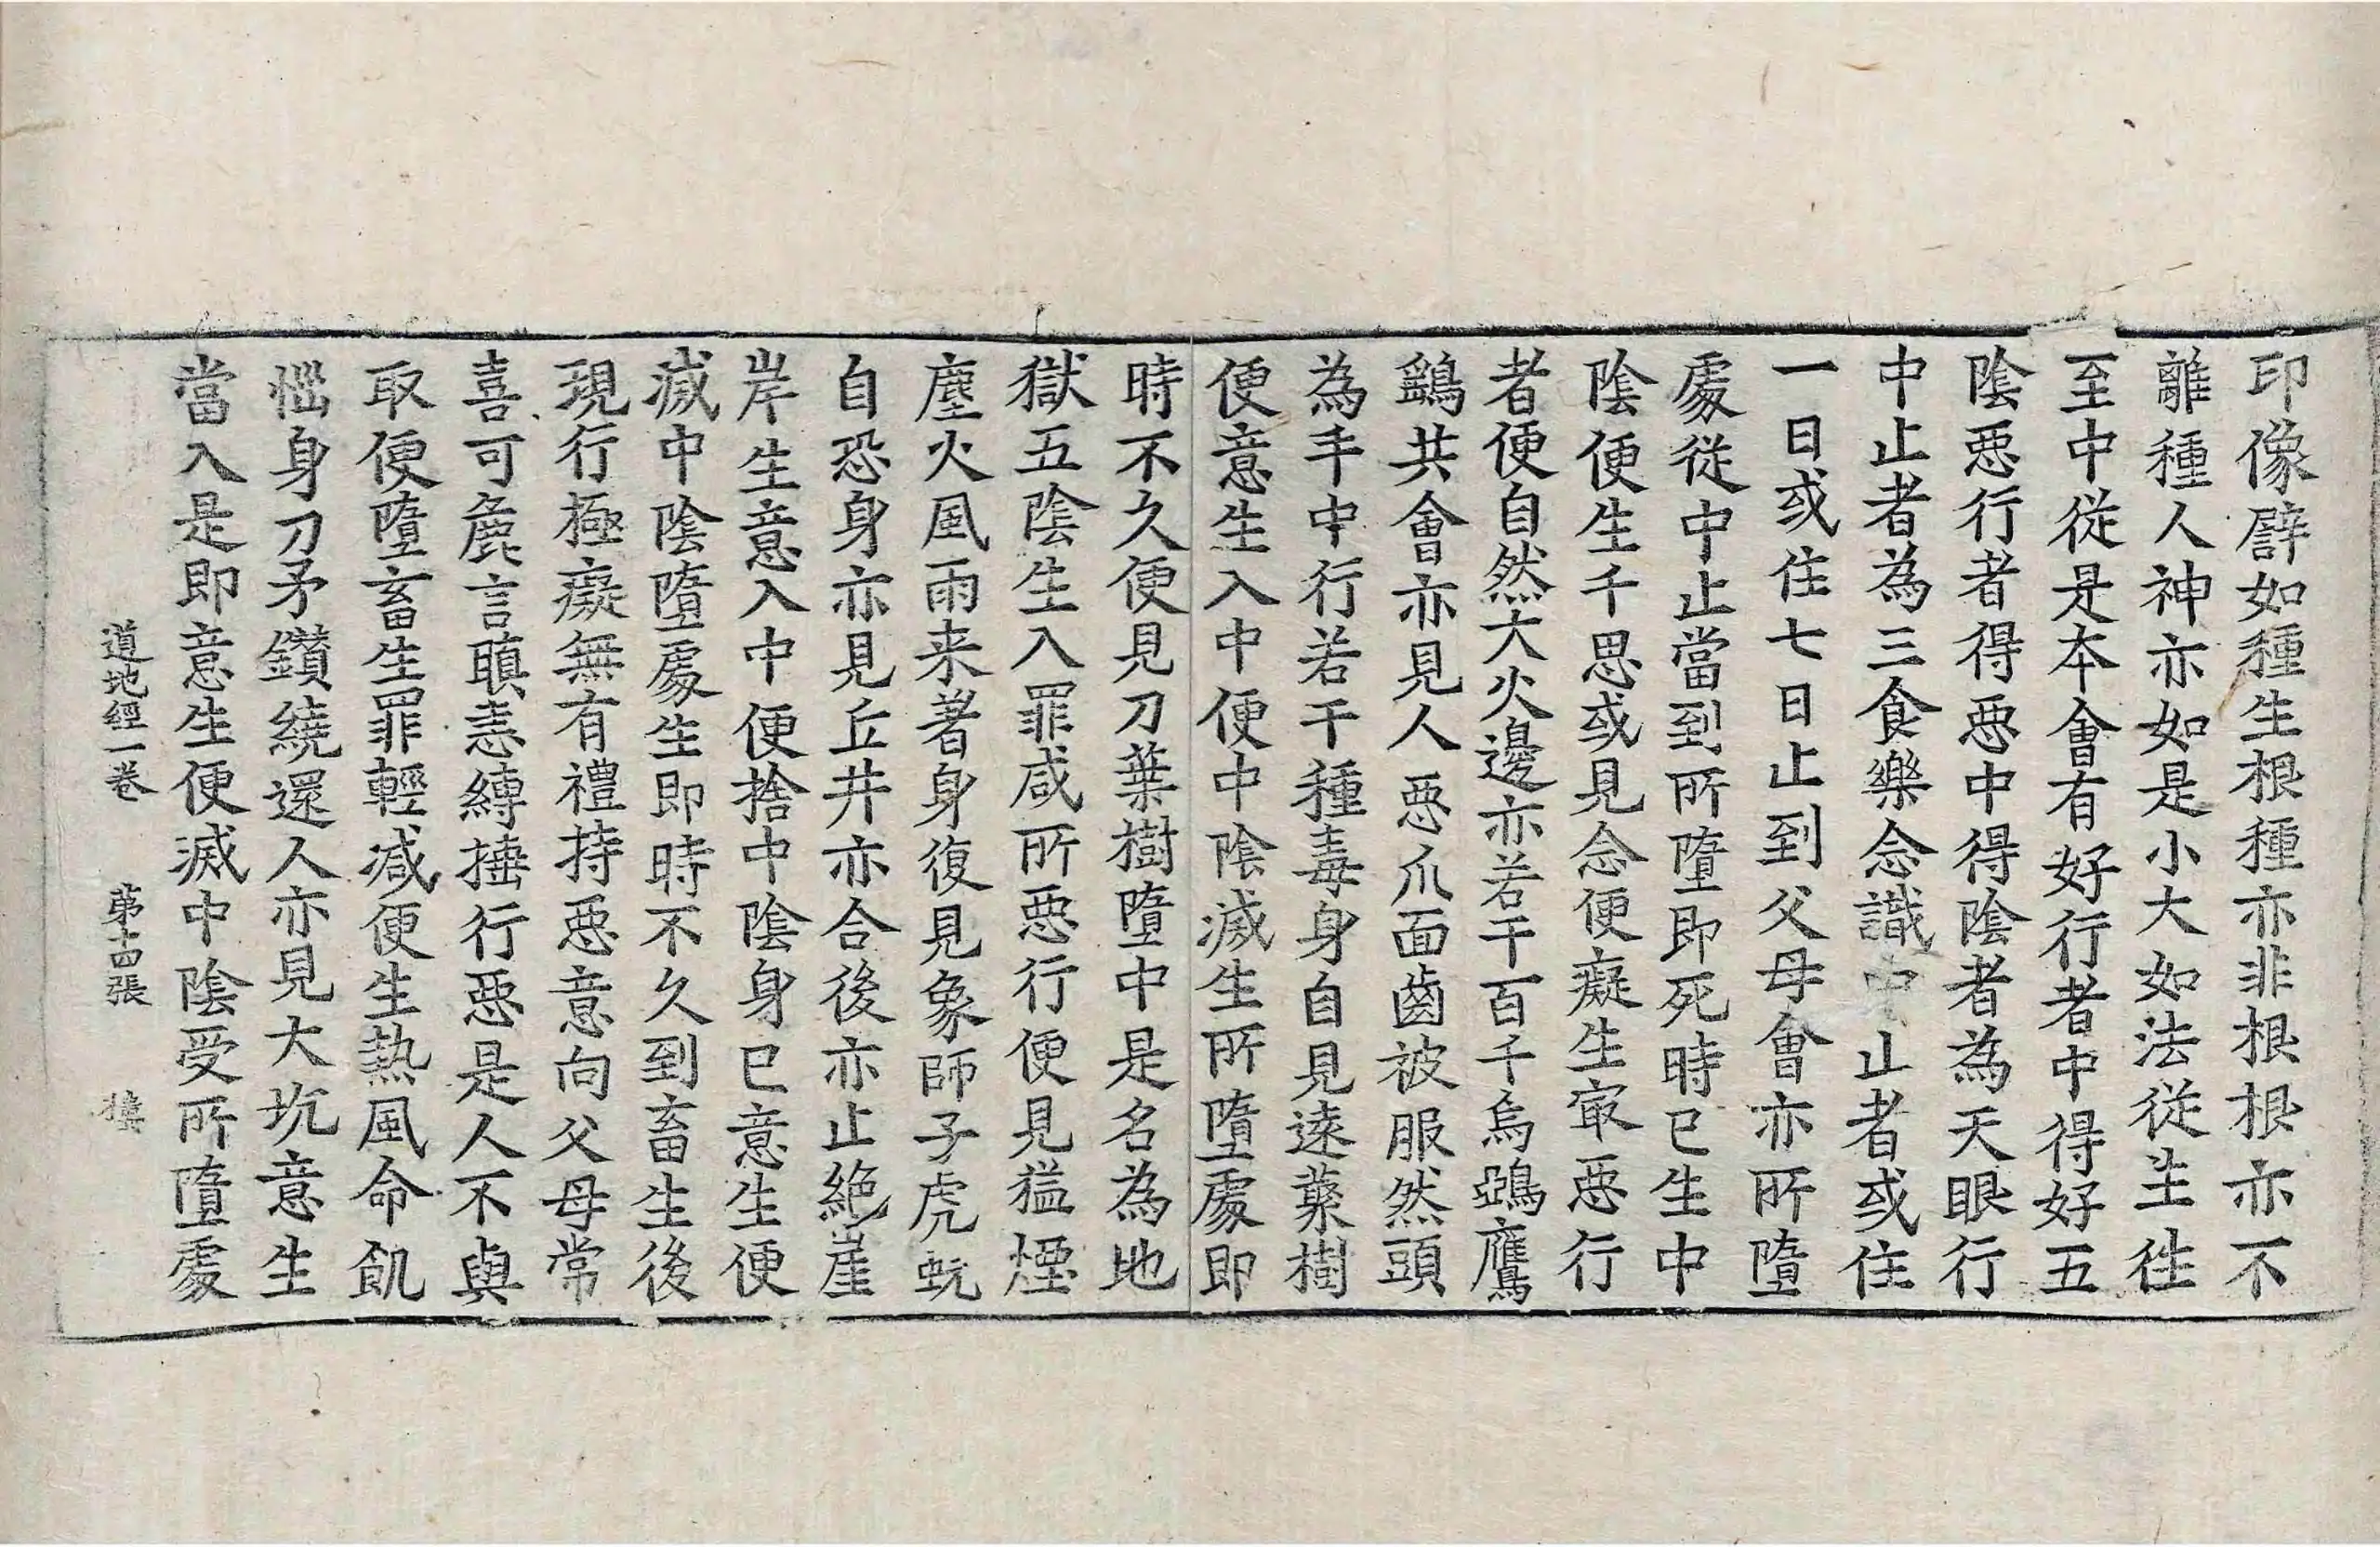 印像譬如種生根種亦非根根亦不
離種人神亦如是小大如法從生往
至中從是本會有好行者中得好五
陰惡行者得惡中得陰者為天眼行
中止者為三食樂念識中止者或住
一日或住七日止到父母會亦所墮
處從中止當到所墮即死時已生中
陰便生千思或見念便癡生寂惡行
者便自然大火邊亦若干百千烏鵄鷹
鷂共會亦見人惡爪面齒被服然頭
為手中行若干種毒身自見遠蘽樹
便意生入中便中陰滅生所墮處即
時不久便見刀葉樹墮中是名為地
獄五陰生入罪咸所惡行便見猛煙
塵火風雨来著身復見象師子虎蚖
自恐身亦見丘井亦合後亦止絕崖
岸生意入中便捨中陰身已意生便
滅中陰墮處生即時不久到畜生後
現行極癡無有禮持惡意向父母常
喜可麁言瞋恚縛捶行惡是人不與
取便墮畜生罪輕減便生熱風命飢
惱身刀矛鑽繞還人亦見大坑意生
當入是即意生便滅中陰受所墮處
道地經一卷　第十四張